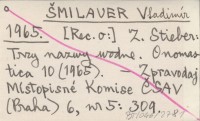 ŠMILAUER Vladimír
1965. [Rec. o:] Z. Stieber:
Trzy nazwy wodne. Onomas
tica 10 (1965). - Zpravodaj
Místopisné Komise ČSAV
(Praha) 6, nr 5: 309.